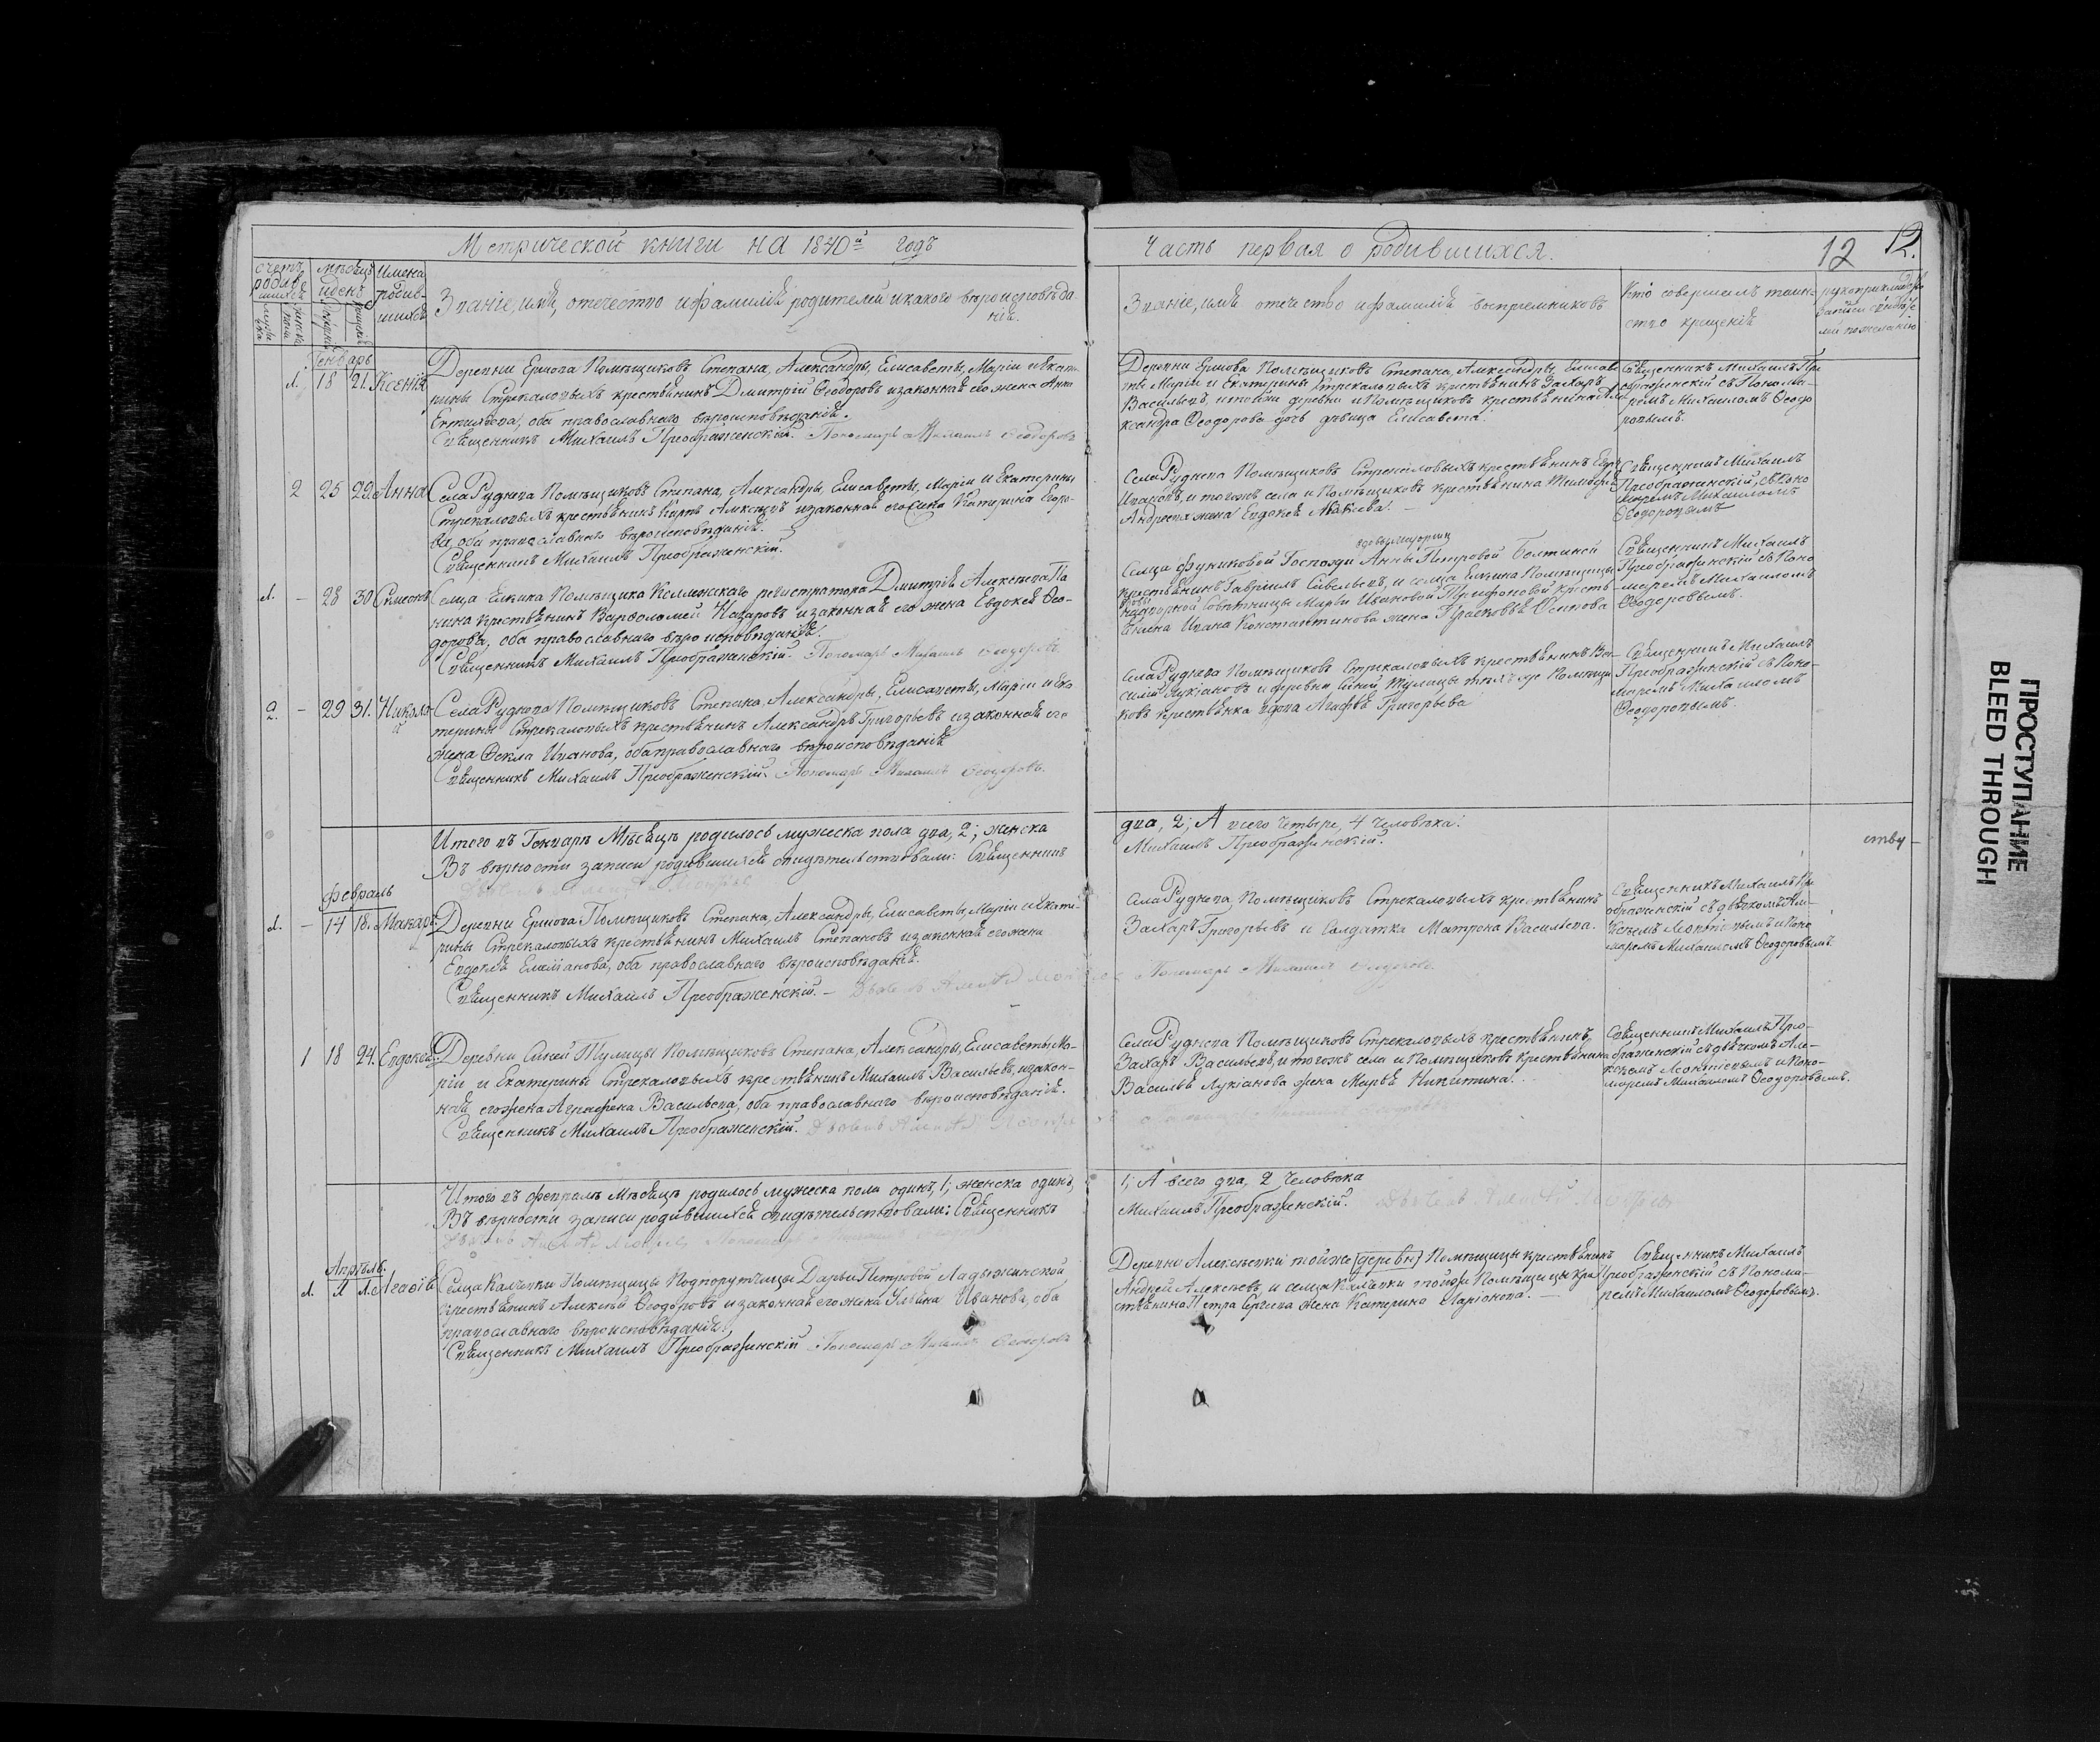 Метрической книги на 1840й годъ
Часть первая о родившихся.
12 12.
Счетъ родившихся
Мѣсяцъ и день
Имена родившихся
Званіе, имя, отечество и фамилія родителей и какого вѣроисповѣданія.
Званіе, имя, отечество и фамилія воспріемниковъ
Кто совершалъ таинство крещенія
Генварь
1. 18 21. Ксенія
Деревни Ершова Помѣщиковъ Степана, Александры, Елисаветы, Маріи и Екате-
рины Стрекаловыхъ крестьянинъ Дмитрій Ѳеодоровъ и законная его жена Анна
оба православнаго вѣроисповѣданія.
Священникъ Михаилъ Преображенскій. Пономарь Михаилъ Ѳеодоровъ
Деревни Ершова Помѣщиковъ Степана, Александры, Елисаве-
ты Маріи и Екатерины Стрекаловыхъ крестьянинъ Захаръ
Васильевъ, и тойжи деревни и Помѣщиковъ крестьянина Але
ксандра Ѳеодорова дочь дѣвица Елисавета.
Священникъ Михаилъ Пре
ображенскій съ Понома-
ремъ Михаиломъ Ѳеодо
ровымъ.
2 25 29. Анна
Села Руднева Помѣщиковъ Степана, Александры, Елисаветы, Маріи и Екатерины
Стрекаловыхъ крестьянинъ Карпъ Алексѣевъ и законная его жена Катерина Егоро-
ва, оба православнаго вѣроисповѣданія.
Священникъ Михаилъ Преображенскій.
Села Руднева Помѣщиковъ Стрекаловыхъ крестьянинъ Егоръ
Ивановъ, и тогожъ села и Помѣщиковъ крестьянина Тимоѳея
Андреева жена Евдокія
Священникъ Михаилъ
Преображенскій, съ Поно
маремъ Михаиломъ
Ѳеодоровымъ
1. - 28 30 Симеонъ
Селца Елкина Помѣщика Коллежскаго регистратора Дмитрія Алексѣева Па
нина крестьянинъ Варѳоломей Назаровъ и законная его жена Евдокія Ѳео-
дорова, оба православнаго вѣроисповѣданія.
Священникъ Михаилъ Преображенскій. Пономарь Михаилъ Ѳеодоровъ
вдовы Маіорши
Селца Фуниковой Госпожи Анны Петровой Болтиной
крестьянинъ Гавріилъ Савельевъ, и селца Елкина Помѣщицы
Надворной Совѣтницы Марьи Ивановой Трифоновой кресть
янина Ивана Константинова жена Прасковья Осипова
Священникъ Михаилъ
Преображенскій съ Поно
маремъ Михаиломъ
Ѳеодоровымъ.
2. - 29 31. Никола
й
Села Руднева Помѣщиковъ Степана, Александры, Елисаветы, Маріи и Ека
терины Стрекаловыхъ крестьянинъ Александръ Григорьевъ и законная его
жена Ѳекла Иванова, оба православнаго вѣроисповѣданія
Священникъ Михаилъ Преображенскій. Пономарь Михаилъ Ѳеодоровъ.
Села Руднева Помѣщиковъ Стрекаловыхъ крестьянинъ Ва-
силій Лукіановъ и деревни Синей Тулицы тѣхъ же Помѣщи
ковъ крестьянка вдова Агафья Григорьева
Священникъ Михаилъ
Преображенскій съ Поно-
маремъ Михаиломъ
Ѳеодоровымъ.
Итого въ Генварѣ Мѣсяцѣ родилось мужеска пола два, 2; женска
два, 2; А всего четыре, 4 человѣка.
Въ вѣрности записи родившихся свидѣтельствовали: Священникъ
Михаилъ Преображенскій.
ству
Февраль
1. - 14 18. Макарій
Деревни Ершова Помѣщиковъ Степана, Александры, Елисаветы, Маріи и Екате-
рины Стрекаловыхъ крестьянинъ Михаилъ Степановъ и законная его жена
Евдокія Емеліанова, оба православнаго вѣроисповѣданія.
Священникъ Михаилъ Преображенскій. - Пономарь Михаилъ Ѳеодоровъ.
Села Руднева Помѣщиковъ Стрекаловыхъ крестьянинъ
Захаръ Григорьевъ и Салдатка Матрона Васильева.
Священникъ Михаилъ Пре
ображенскій съ дьячкомъ Але-
ксѣемъ Леонтьевымъ и Поно
маремъ Михаиломъ Ѳеодоровымъ.
1 18 24. Евдокія
Деревни Синей Тулицы Помѣщиковъ Степана, Александры, Елисаветы, Ма-
ріи и Екатерины Стрекаловыхъ крестьянинъ Михаилъ Васильевъ, и закон-
ная его жена Аграфена Васильева, оба православнаго вѣроисповѣданія.
Священникъ Михаилъ Преображенскій.
Села Руднева Помѣщиковъ Стрекаловыхъ крестьянинъ
Захаръ Васильевъ, и тогожъ села и Помѣщиковъ крестьянина
Василья Лукіанова жена Марья Никитина.
Священникъ Михаилъ Прео-
браженскій съ дьячкомъ Але-
ксѣемъ Леонтьевымъ и Поно-
маремъ Михаиломъ Ѳеодоровымъ.
Итого въ Февралѣ Мѣсяцѣ родилось мужеска пола одинъ, 1; женска одинъ,
1; А всего два, 2 человѣка
Въ вѣрности записи родившихся свидѣтельствовали: Священникъ
Михаилъ Преображенскій.
Апрѣль.
1. 1 1. Агаѳія
Селца Калчевки Помѣщицы Подпорутчицы Дарьи Петровой Ладыженской
крестьянинъ Алексѣй Ѳеодоровъ и законная его жена Ульяна Иванова, оба
православнаго вѣроисповѣданія.
Священникъ Михаилъ Преображенскій Пономарь Михаилъ Ѳеодоровъ
Деревни Алексѣевки тойже (деревни) Помѣщицы крестьянинъ
Андрей Алексѣевъ, и селца Калчевки тойже Помѣщицы кре
стьянина Петра Сергѣева жена Катерина Ларіонова. —
Священникъ Михаилъ
Преображенскій съ Понома-
ремъ Михаиломъ Ѳеодоровымъ.
ПРОСТУПАНИЕ
BLEED THROUGH